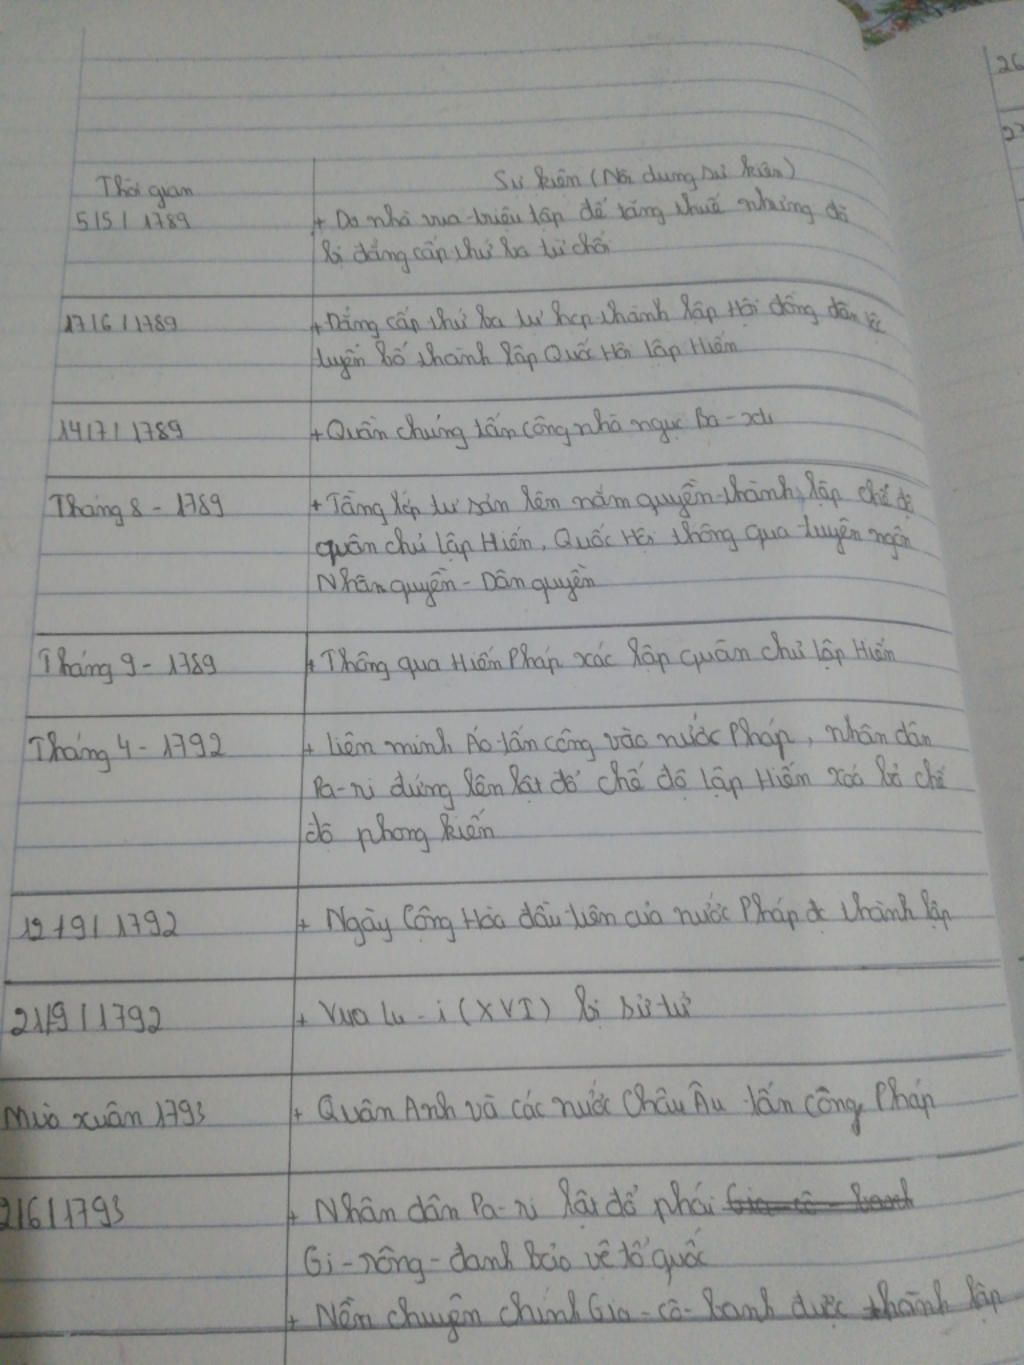 Thời gian
Sự kiện (Nội dung sự kiện)
5/5/1789
+ Do nhà vua triệu tập để tăng thuế nhưng đã
bị đẳng cấp thứ ba từ chối
17/6/1789
+ Đẳng cấp thứ ba tự họp thành lập Hội đồng dân tộc
tuyên bố thành lập Quốc Hội lập Hiến
14/7/1789
+ Quần chúng tấn công nhà ngục Ba-xti
Tháng 8 - 1789
+ Tầng lớp tư sản lên nắm quyền thành lập chế độ
quân chủ lập Hiến, Quốc Hội thông qua tuyên ngôn
Nhân quyền - Dân quyền
Tháng 9 - 1789
+ Thông qua Hiến Pháp xác lập quân chủ lập Hiến
Tháng 4 - 1792
+ Liên minh Áo tấn công vào nước Pháp, nhân dân
Pa-ri đứng lên lật đổ chế độ lập Hiến xoá bỏ chế
độ phong kiến
/9/1792
+ Ngày Cộng Hòa đầu tiên của nước Pháp đc thành lập
21/9/1792
+ Vua Lu-i (XVI) bị xử tử
Mùa xuân 1793
+ Quân Anh và các nước Châu Âu tấn công Pháp
2/6/1793
+ Nhân dân Pa-ri lật đổ phái Gia-cô-banh
Gi-rông-đanh bảo vệ tổ quốc
+ Nền chuyên chính Gia-cô-banh được thành lập
26